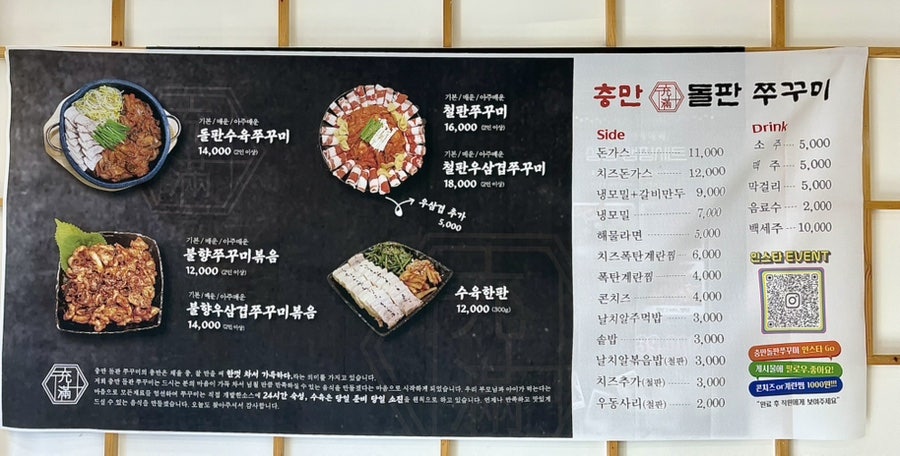 기본 / 매운 / 아주매운
돌판수육쭈꾸미
14,000 (2인 이상)
기본 / 매운 / 아주매운
철판쭈꾸미
16,000 (2인 이상)
기본 / 매운 / 아주매운
철판우삼겹쭈꾸미
18,000 (2인 이상)
우삼겹 추가
5,000
기본 / 매운 / 아주매운
불향쭈꾸미볶음
12,000 (2인 이상)
기본 / 매운 / 아주매운
불향우삼겹쭈꾸미볶음
14,000 (2인 이상)
수육한판
12,000 (300g)
充滿
충만 돌판 쭈꾸미의 충만은 채울 충, 찰 만을 써 한껏 차서 가득하다.라는 의미를 가지고 있습니다.
저희 충만 돌판 쭈꾸미는 드시는 분의 마음이 가득 차서 넘칠 만큼 만족하실 수 있는 음식을 만들겠다는 마음으로 시작하게 되었습니다. 우리 부모님과 아이가 먹는다는
마음으로 모든재료를 엄선하여 쭈꾸미는 직접 개발한소스에 24시간 숙성, 수육은 당일 준비 당일 소진을 원칙으로 하고 있습니다. 언제나 만족하고 맛있게
드실 수 있는 음식을 만들겠습니다. 오늘도 찾아주셔서 감사합니다.
충만 充滿 돌판 쭈꾸미
Side
돈가스 11,000
치즈돈가스 12,000
냉모밀+갈비만두 9,000
냉모밀 7,000
해물라면 5,000
치즈폭탄계란찜 6,000
폭탄계란찜 4,000
콘치즈 4,000
날치알주먹밥 3,000
솥밥 3,000
날치알볶음밥(철판) 3,000
치즈추가(철판) 3,000
우동사리(철판) 2,000
Drink
소 주 5,000
맥 주 5,000
막걸리 5,000
음료수 2,000
백세주 10,000
인스타 EVENT
충만돌판쭈꾸미 인스타 Go
게시물에 팔로우,좋아요!
콘치즈 or 계란찜 1000원!!!
"완료 후 직원에게 보여주세요"